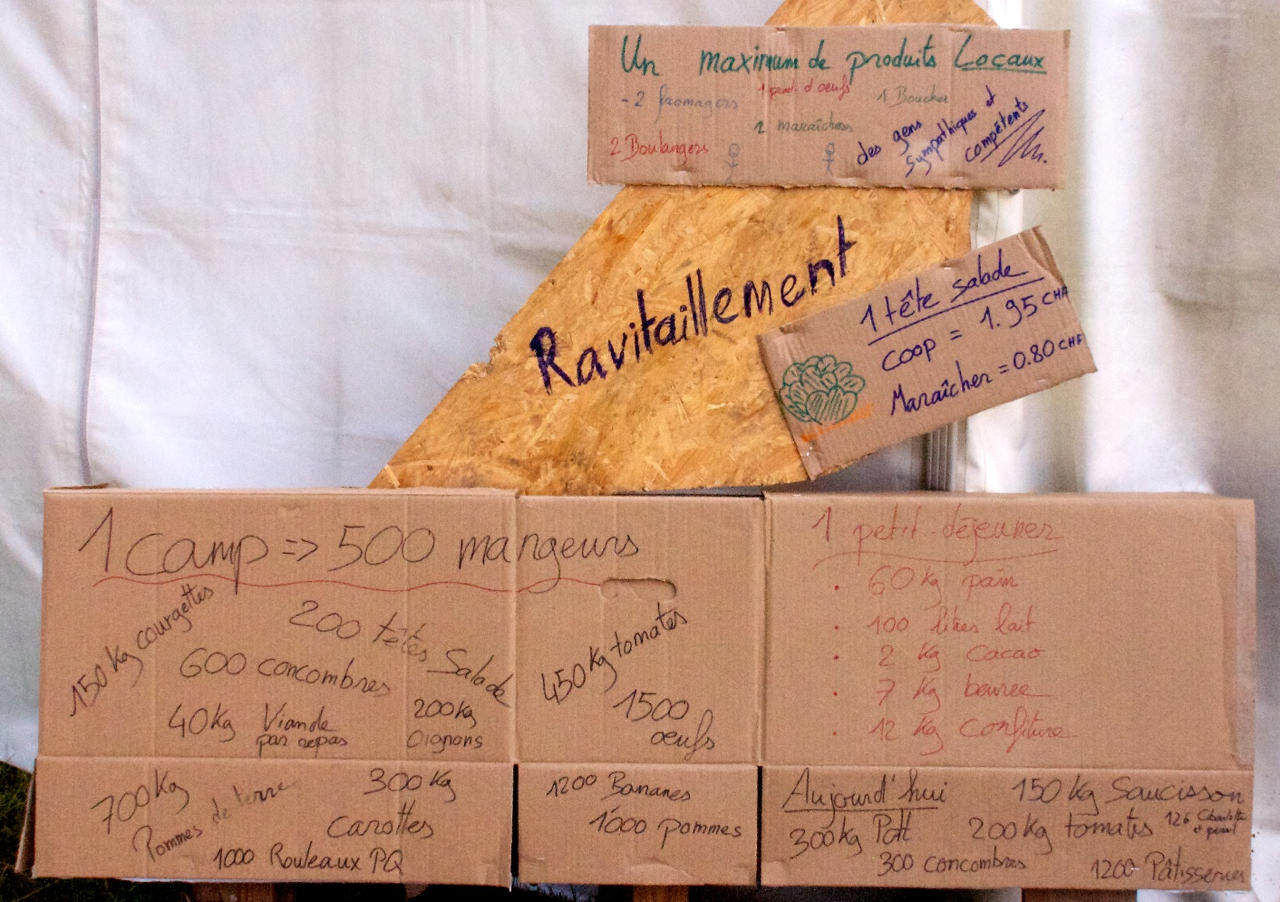 Un maximum de produits Locaux
- 2 fromagers
1 prod. d'oeufs
1 Boucher
2 maraîchers
2 Boulangers
des gens
sympathiques et
compétents
Ravitaillement
1 tête salade
COOP = 1.95 CHF
Maraîcher = 0.80 CHF
1 camp => 500 mangeurs
150 Kg courgettes
200 têtes Salade
600 concombres
450 Kg tomates
40 Kg Viande
par repas
200 Kg
Oignons
1500
oeufs
700 Kg
Pommes de terre
300 Kg
carottes
1000 Rouleaux PQ
1200 Bananes
1000 pommes
1 petit-déjeuner
· 60 Kg pain
· 100 litres lait
· 2 Kg Cacao
· 7 Kg beurre
· 12 Kg confiture
Aujourd'hui
150 Kg Saucisson
300 Kg
200 Kg tomates
126
300 concombres
1200 Pâtisseries